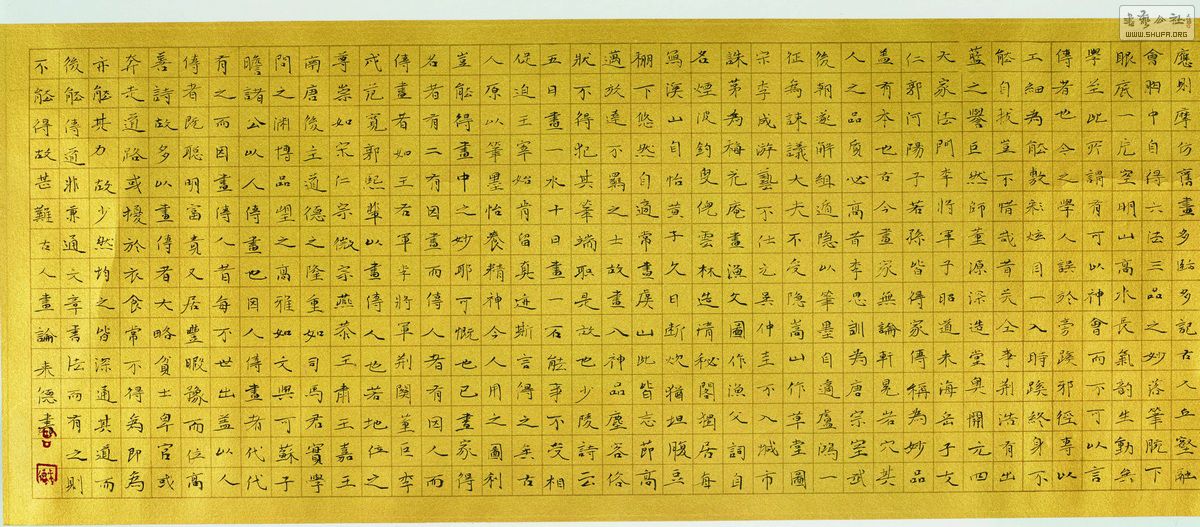 應則摩仿舊畫多臨多記古人丘壑融
會胸中自得六法三品之妙落筆腕下
眼底一片空明山高水長氣韻生動無
學至此所謂有可以神會而不可以言
傳者也今之學人誤於旁蹊邪徑專以
工細為能敷彩炫目一入時蹊終身不
能自拔豈不惜哉昔關仝李荊浩有出
藍之譽巨然師董源深造堂奧開元四
大家法門李將軍子昭道米海岳子友
仁郭河陽子若孫皆得家傳稱為妙品
蓋有本也古今畫家無論軒冕岩穴其
人之品質必高昔李思訓為唐宗室武
後朝遂解組遁隱以筆墨自適盧鴻一
征為諫議大夫不受隱嵩山作草堂圖
宗李成游藝不仕元吳仲圭不入城市
誅茅為梅花庵畫漁父圖作漁父詞自
名煙波釣叟倪雲林造清秘閣獨居每
寫溪山自怡黃子久日斷炊猶坦腹豆
棚下悠然自適常畫虞山此皆忘節高
邁放達不羈之士故畫入神品塵容俗
狀不得犯其筆端取是故也少陵詩云
五日畫一水十日畫一石能事不受相
促迫王宰始肯留真迹斯言得之矣古
人原以筆墨怡養精神今人用之圖利
豈能得畫中之妙耶可慨也已畫家得
名者有二有因畫而傳人者有因人而
傳畫者如王右軍李將軍荊關董巨李
成范寬郭熙輩以畫傳人也若地位之
尊崇如宋仁宗徽宗燕恭王肅王嘉王
南唐後主道德之隆重如司馬君實學
問之淵博品望之高雅如文與可蘇子
瞻諸公以人傳畫也因人傳畫者代代
有之而因畫傳人昔每不世出蓋以人
傳者既聰明富貴又居豐暇豫而位高
善詩故多以畫傳者大略貧士卑官或
奔走道路或擾於衣食常不得為即為
亦能其力故少然均之皆深通其道而
後能傳道非兼通文章書法而有之則
不能得故甚難古人畫論朱德書
WWW.SHUFA.ORG